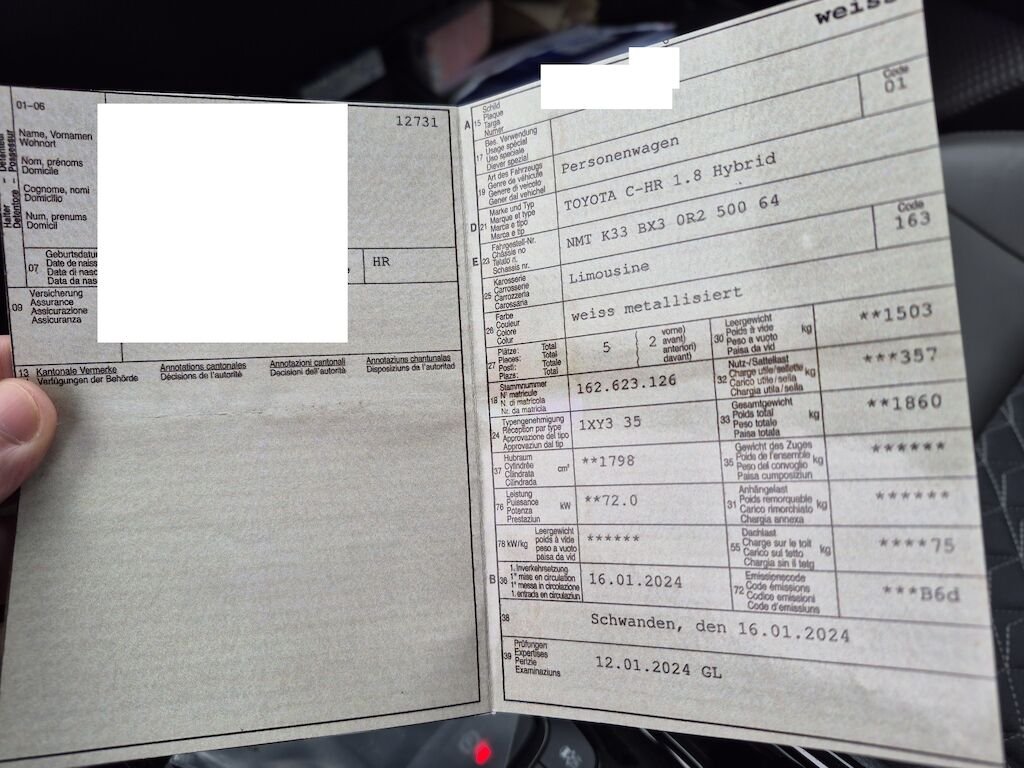 01-06
12731
Halter - Détenteur
Detentore - Possessur
Name, Vornamen
Wohnort
Nom, prénoms
Domicile
Cognome, nomi
Domicilio
Num, prenums
Domicil
07
Geburtsdatu
Date de naiss
Data di nasc
Data da nas
HR
09
Versicherung
Assurance
Assicurazione
Assicuranza
13 Kantonale Vermerke
Verfügungen der Behörde
Annotations cantonales
Décisions de l'autorité
Annotazioni cantonali
Decisioni dell'autorità
Annotaziuns chantunalas
Disposiziuns da l'autoritad
weiss
A 15
Schild
Plaque
Targa
Numer
17
Bes. Verwendung
Usage spécial
Uso speciale
Diever spezial
19
Art des Fahrzeugs
Genre de véhicule
Genere di veicolo
Gener dal vehichel
Personenwagen
Code
01
D 21
Marke und Typ
Marque et type
Marca e tipo
Marca e tip
TOYOTA C-HR 1.8 Hybrid
E 23
Fahrgestell-Nr.
Châssis no
Telaio n.
Schassis nr.
NMT K33 BX3 0R2 500 64
25
Karosserie
Carrosserie
Carrozzeria
Carossaria
Limousine
Code
163
26
Farbe
Couleur
Colore
Colur
weiss metallisiert
27
Plätze: Total
Places: Total
Posti: Totale
Plazs: Total
5
2
vorne)
avant)
anteriori)
davant)
30
Leergewicht
Poids à vide
Peso a vuoto
Paisa da vid
kg
**1503
18
Stammnummer
N° matricule
N. di matricola
Nr. da matricla
162.623.126
32
Nutz-/Sattellast
Charge utile/sellette
Carico utile/sella
Chargia utila/sella
kg
***357
24
Typengenehmigung
Réception par type
Approvazione del tipo
Approvaziun dal tip
1XY3 35
33
Gesamtgewicht
Poids total
Peso totale
Paisa totala
kg
**1860
37
Hubraum
Cylindrée
Cilindrata
Cilindrada
cm³
**1798
35
Gewicht des Zuges
Poids de l'ensemble
Peso del convoglio
Paisa cumposiziun
kg
******
76
Leistung
Puissance
Potenza
Prestaziun
kW
**72.0
31
Anhängelast
Poids remorquable
Carico rimorchiato
Chargia annexa
kg
******
78 kW/kg
Leergewicht
poids à vide
peso a vuoto
paisa da vid
******
55
Dachlast
Charge sur le toit
Carico sul tetto
Chargia sin il tetg
kg
****75
B 36
1. Inverkehrsetzung
1re mise en circulation
1a messa in circolazione
1. entrada en circulaziun
16.01.2024
72
Emissionscode
Code émissions
Codice emissioni
Code d'emissiuns
***B6d
38
Schwanden, den 16.01.2024
39
Prüfungen
Expertises
Perizie
Examinaziuns
12.01.2024 GL